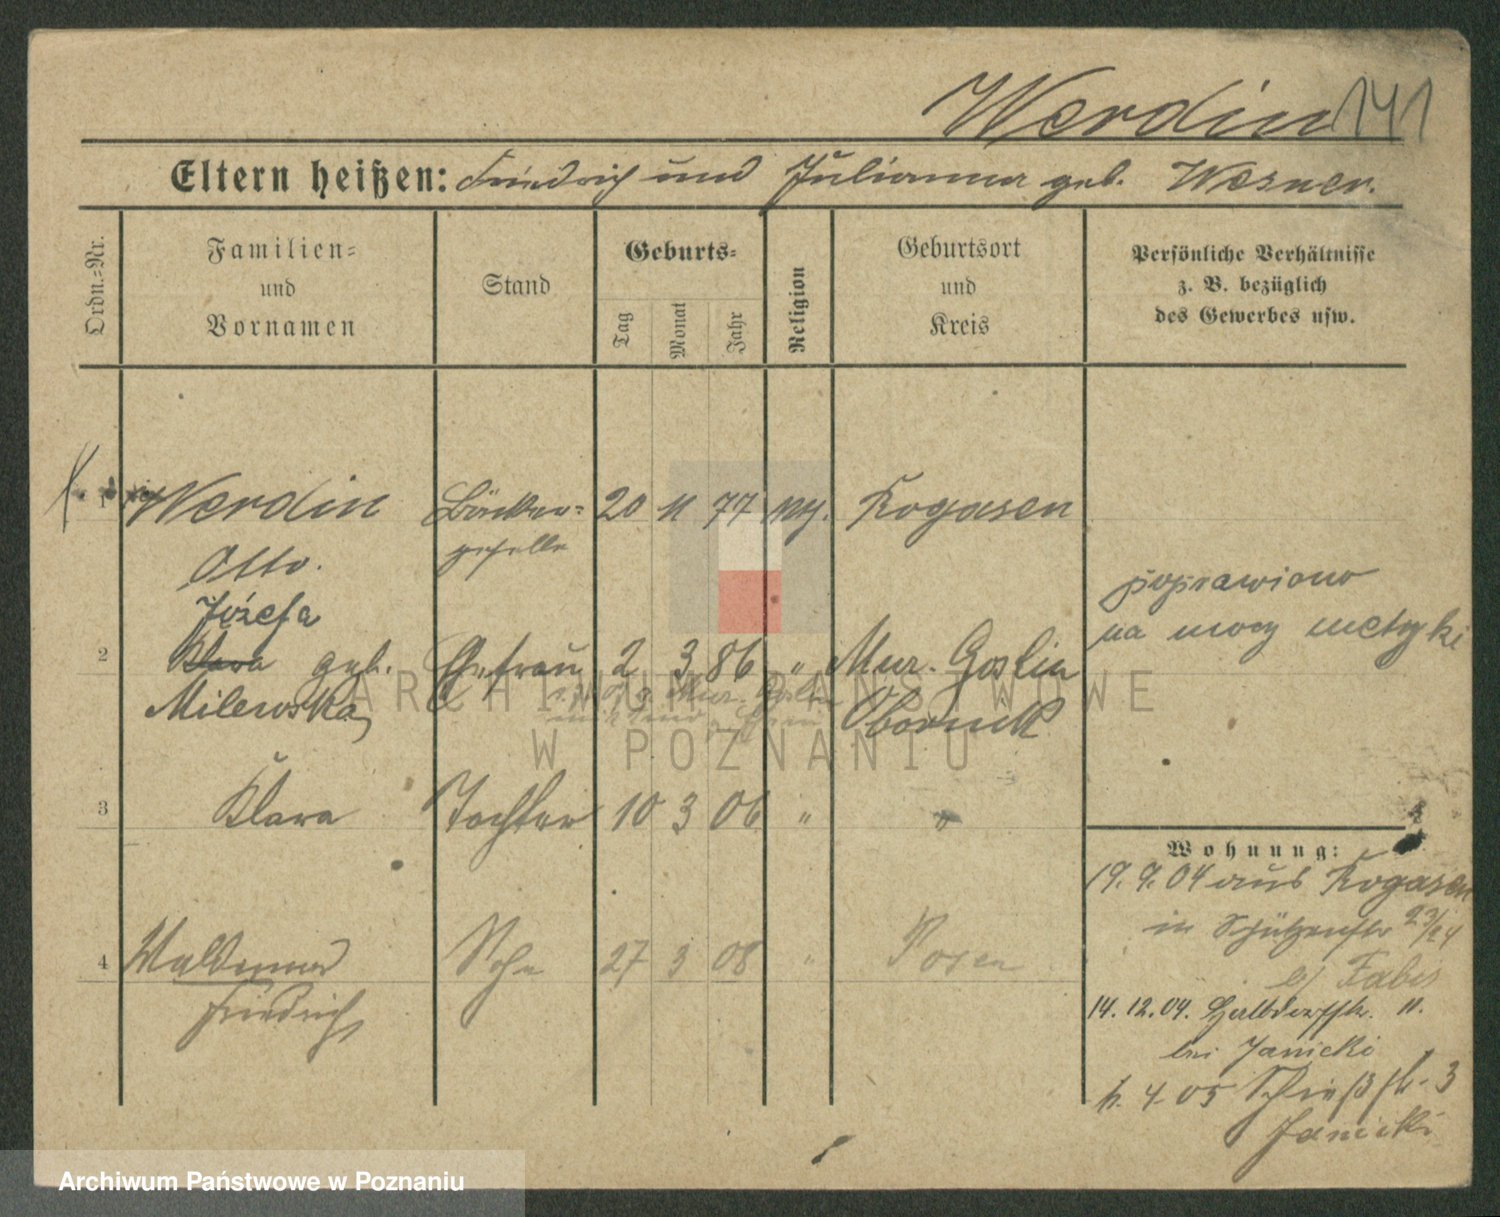 Werdin 141
Eltern heißen: Friedrich und Julianna geb. Wesner.
Ordn.=Nr.
Familien=
und
Vornamen
Stand
Geburts=
Tag
Monat
Jahr
Religion
Geburtsort
und
Kreis
Persönliche Verhältnisse
z. B. bezüglich
des Gewerbes usw.
1 Werdin Bäcker= 20 11 77 Rogasen
Otto. geselle
Józefa
2 Klara geb. Ehefrau 2 3 86 " Mur. Goslin
Milewska Obornik
poprawiono
na mocy metryki
3 Klara Tochter 10 3 06 " "
4 Waldemar Sohn 27 3 08 " Posen
Friedrich
Wohnung:
19. 9. 04 aus Rogasen
in Schützenstr 23/24
b/ Fabis
14. 12. 04. Halbdorfstr. 11.
bei Janicki
4. 05 Schießstr. 3
Janicki
ARCHIWUM PAŃSTWOWE
W POZNANIU
Archiwum Państwowe w Poznaniu